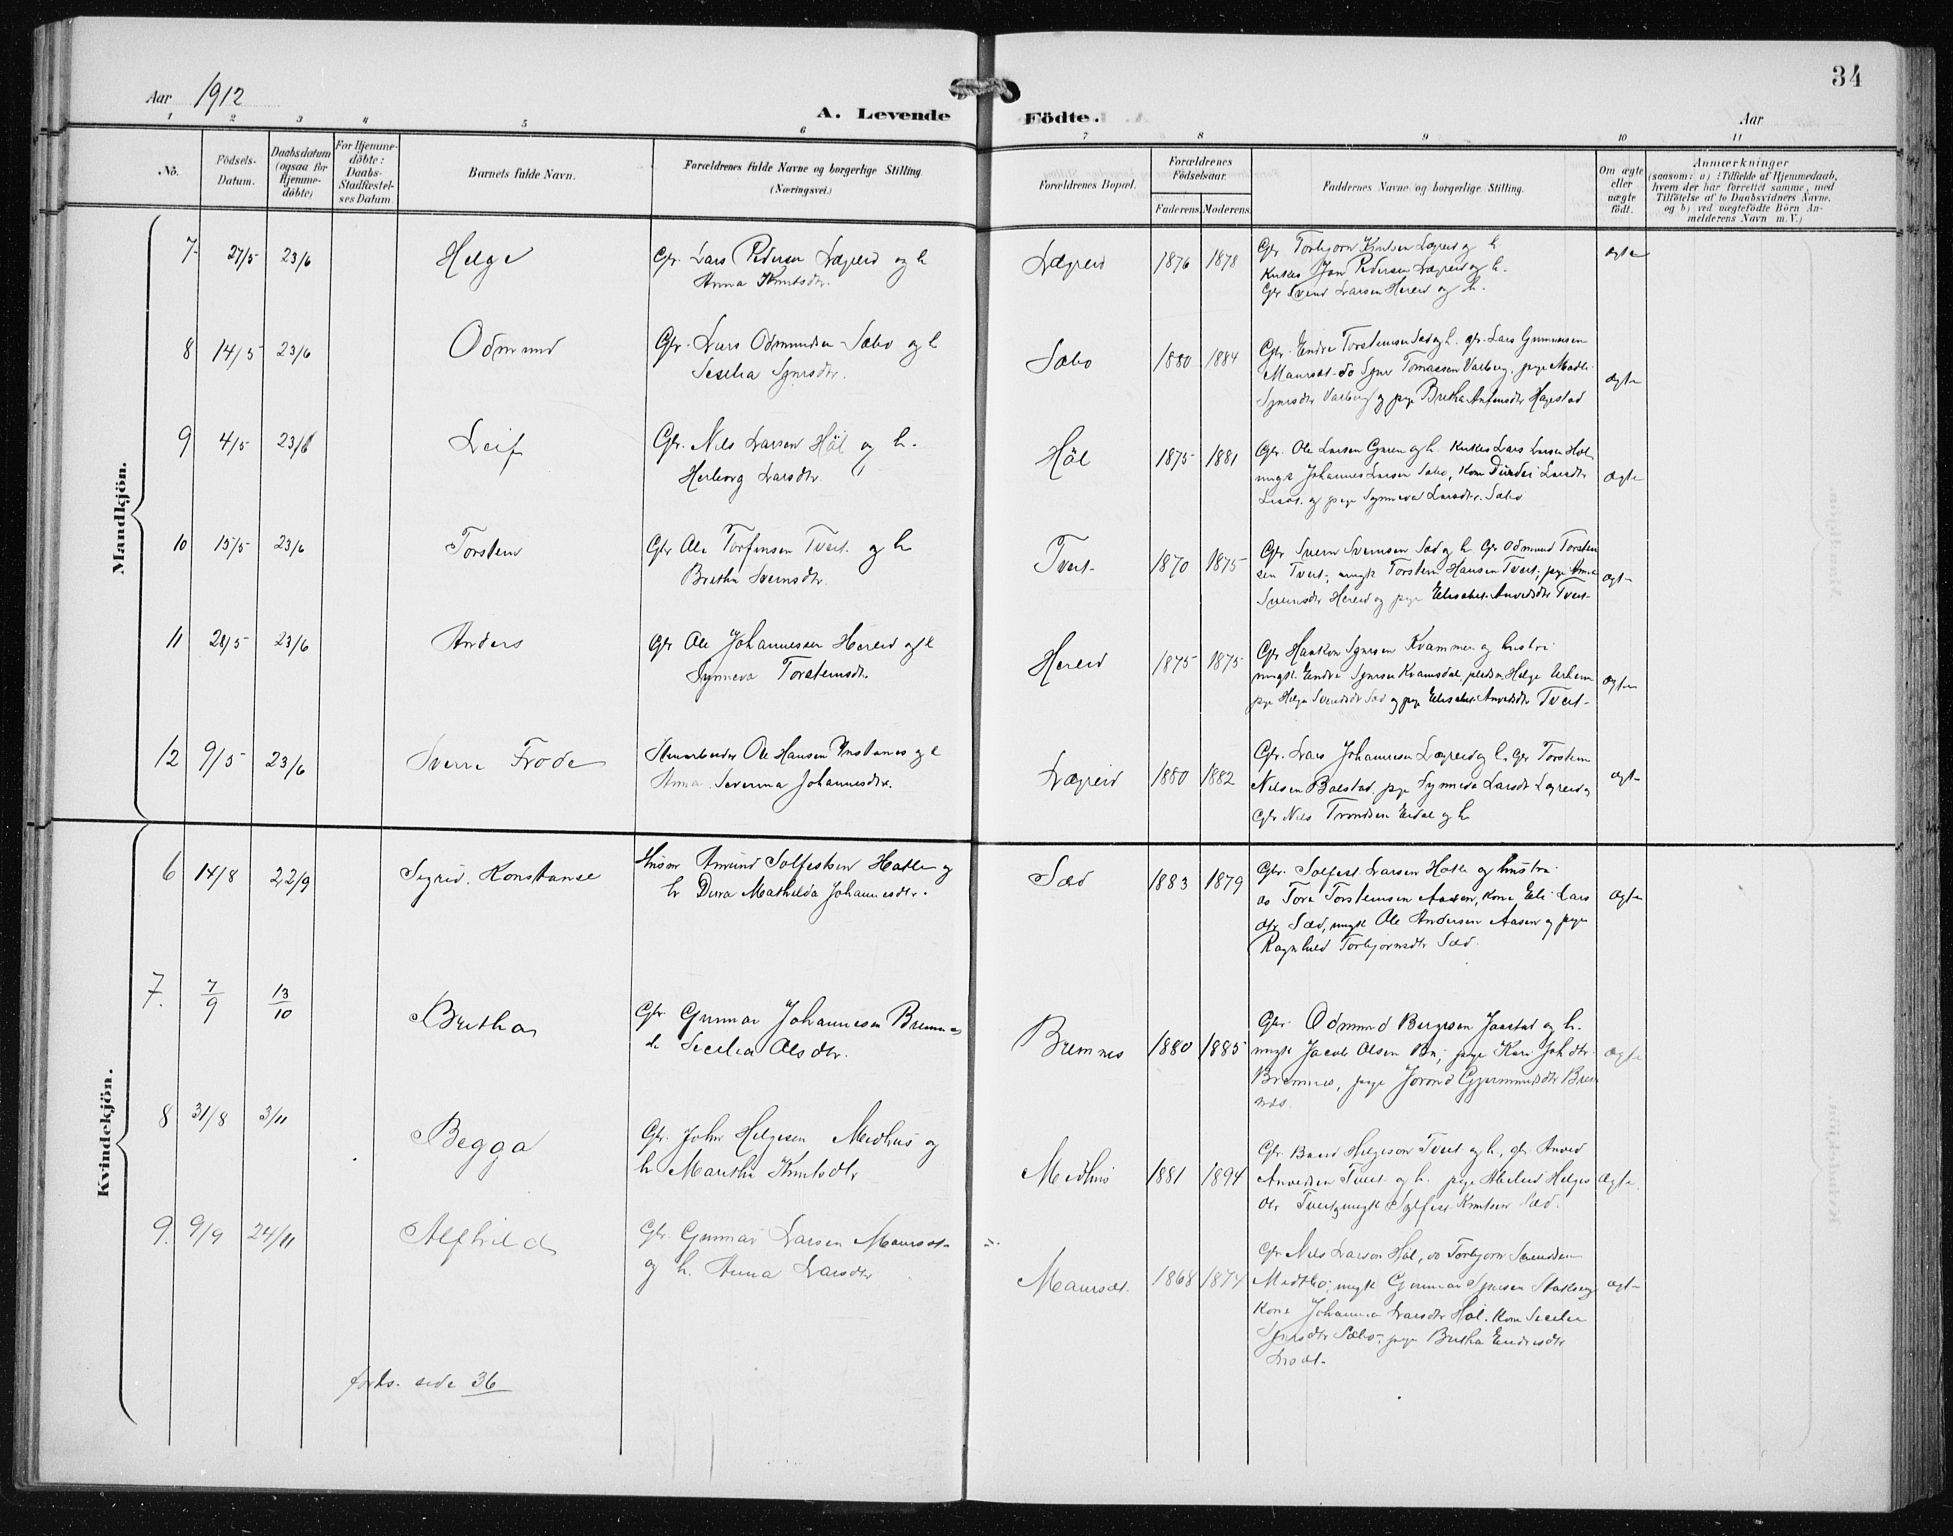 34
Aar 1912
A. Levende Födte.
Aar
1 2 3 4 5 6 7 8 9 10 11
No.
Födsels-Datum.
Daabsdatum (ogsaa for Hjemme-döbte)
For Hjemme-döbte: Daabs-Stadfæstel-ses Datum.
Barnets fulde Navn.
Forældrenes fulde Navne og borgerlige Stilling (Næringsvei.)
Forældrenes Bopæl.
Forældrenes Födselsaar.
Faderens. Moderens.
Faddernes Navne og borgerlige Stilling.
Om ægte eller uægte födt.
Anmærkninger
(saasom: a) i Tilfælde af Hjemmedaab,
hvem der har forrettet samme, med
Tilföielse af to Daabsvidners Navne,
og b) ved uægtefödte Börn An-
melderens Navn m. V.)
Mandkjön.
7 27/5 23/6 Helge
Gbr. Lars Pedersen Lægreid og h
Anna Knutsdtr.
Lægreid 1876 1878
Gbr Torbjorn Knutsen Lægreid og h.
Jon Pedersen Lægreid og h.
Gbr Svend Larsen Hereid og h.
ægte
8 14/5 23/6 Odmund
Gbr. Lars Odmundsen Sæbo og h
Sesilia Sjursdtr.
Sæbo 1880 1884
Gbr. Endre Torsteinsen Sæd og h. gbr. Lars Gunnarsen
Maursæt do Sjur Tomassen Varberg, pige
Sjursdtr Varberg og pige Bretha
ægte
9 4/5 23/6 Leif
Gbr. Nils Larsen Höl og h.
Herborg Larsdtr
Höl 1875 1881
Gbr. Ole Larsen Garen og h. Lars Larsen Höl
ungk Johannes Larsen Sæbo, Kone Larsdtr
og pige Synneva Larsdtr. Sæbo
ægte
10 15/5 23/6 Torstein
Gbr Ole Torfinsen Tveit og h
Bretha Sveinsdtr.
Tveit 1870 1875
Gbr Svein Sveinsen Sæd og h Gbr Odmund Torstein
sen Tveit, ungk Torstein Hansen Tveit, pige
Sveinsdtr Hereid og pige Elisabet Anvedsdtr Tveit
ægt-
11 28/5 23/6 Anders
Gbr Ole Johannessen Hereid og h
Synneva Torsteinsdtr.
Hereid 1875 1875
Gbr Haakon Sjursen Kvammen og hustru
ungk. Endre Sjursen Kvamsdal, Helge
pige Helga Sveinsdtr Sæd og pige Elisabet Anvedsdtr Tveit
ægte
12 9/5 23/6 Sverre Frode
Ole Hansen og h
Anna Severina Johannesdtr.
Lægreid 1880 1882
Gbr. Lars Johannesen Lægreid og h. Gbr Torstein
Nilsen Bolstad, pige Synneva Larsdt Lægreid og
Gbr Nils Trondsen Eidal og h
ægt-
Kvindekjön.
6 14/8 22/9 Sigrid Konstanse
Amund Solfestsen Hatle og
h Dina Mathilda Johannesdtr.
Sæd 1883 1879
Gbr. Solfest Larsen Hatle og hustru
do Tore Torsteinsen Aasen, Kone Eli Lars
dtr Sæd, ungk Ole Andersen Aasen og pige
Ragnhild Torbjornsdtr Sæd.
ægte
7. 7/9 13/10 Bretha
Gbr Gunnar Johannesen Bremnes
Secilia Olsdtr.
Bremnes 1880 1885
Gbr. Odmund Bergesen Jaastad og h.
ungk Jacob Olsen Br., pige Kari Joh.dtr
Bremnes, pige Jorond Gjermundsdtr Brem
nes.
ægte
8 31/8 3/11 Begga
Gbr. John Helgesen Medhus og
h Maritha Knutsdtr
Medhus 1881 1894
Gbr. Baard Helgeson Tveit og h, gbr Anved
Anvedsen Tveit og h. pige Helges
dtr Tveit og ungk Sylfest Knutsen Sæd.
ægte
9. 9/9 24/11 Alfhild
Gbr. Gunnar Larsen Maursæt
og h. Anna Larsdtr
Maursæt. 1868 1874
Gbr Nils Larsen Höl, do Torbjorn
Medtbo, ungk Gunnar Sjursen
Kone Johanna Larsdtr Höl, Kone Secilia
Sjursdtr Sæbo, pige Bretha Endresdtr
ægt-
forts. side 36